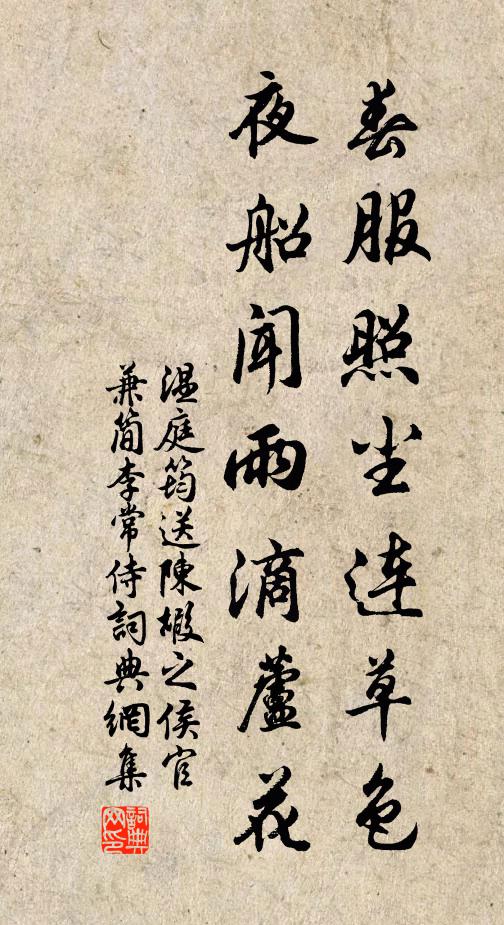 春服照尘连草色
夜船闻雨滴蘆花
温庭筠送陳嘏之侯官
兼简李常侍詞典網集
詞典网印